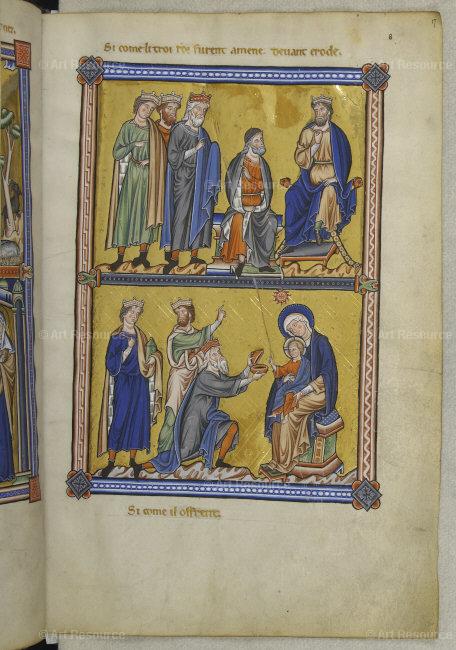 8
17
Si come li troi roi furent amene devant erode.
Si come il offrerent.
© Art Resource
© Art Resource
© Art Resource
© Art Resource
© Art Resource
© Art Resource